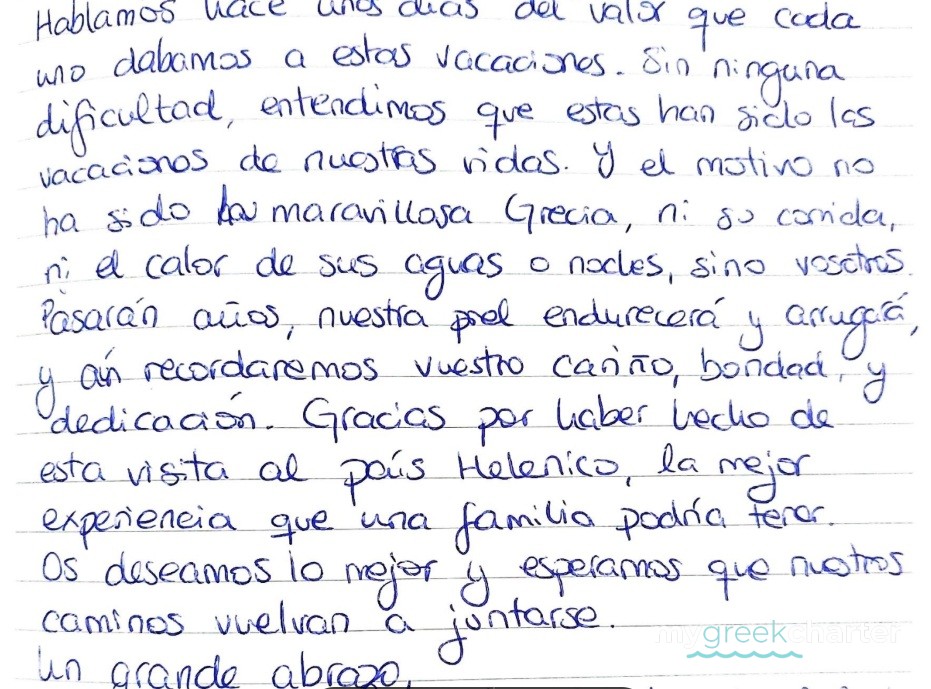 Hablamos hace unos días del valor que cada
uno dabamos a estas vacaciones. Sin ninguna
dificultad, entendimos que estas han sido las
vacaciones de nuestras vidas. Y el motivo no
ha sido la maravillosa Grecia, ni su comida,
ni el calor de sus aguas o noches, sino vosotros.
Pasarán años, nuestra piel endurecerá y arrugará,
y aún recordaremos vuestro cariño, bondad, y
dedicación. Gracias por haber hecho de
esta visita al país Helenico, la mejor
experiencia que una familia podría tener.
Os deseamos lo mejor y esperamos que nuestros
caminos vuelvan a juntarse.
mygreekcharter
Un grande abrazo,